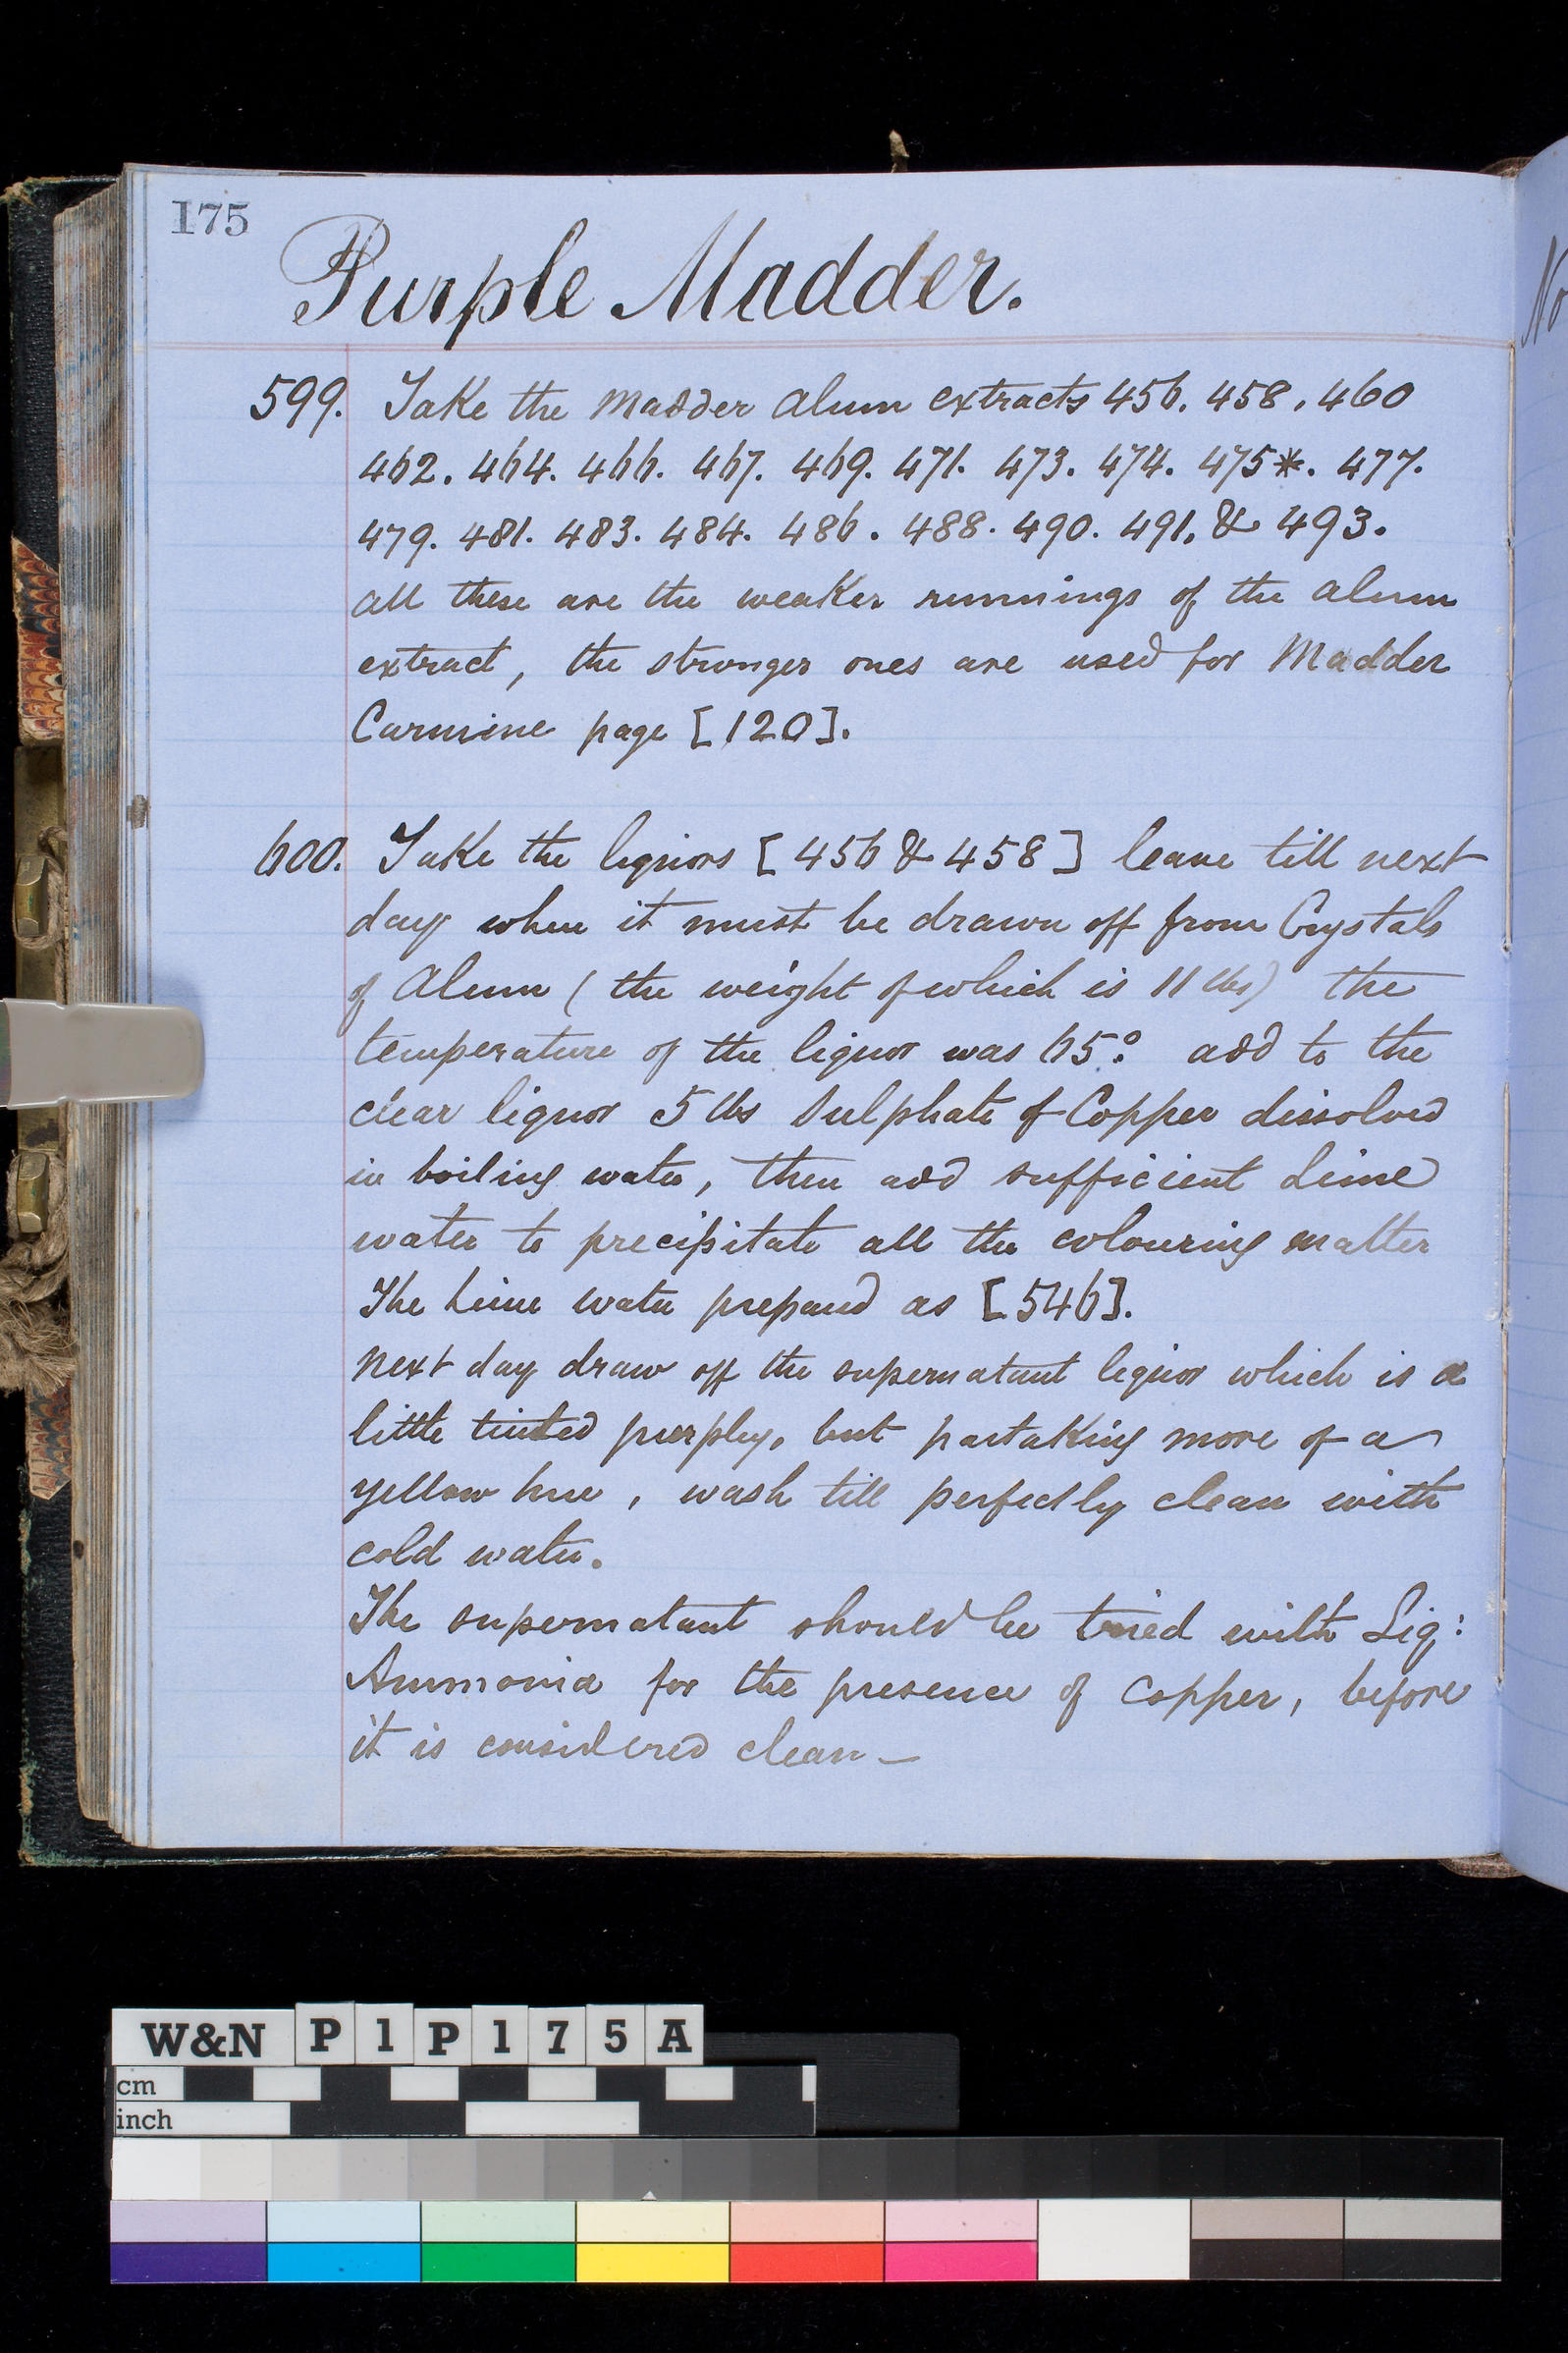 175
Purple Madder.
599. Take the Madder Alum extracts 456. 458. 460
462. 464. 466. 467. 469. 471. 473. 474. 475*. 477.
479. 481. 483. 484. 486. 488. 490. 491. & 493.
all these are the weaker runnings of the alum
extract, the stronger ones are used for Madder
Carmine page [120].
600. Take the liquors [456 & 458] leave till next
day when it must be drawn off from Crystals
of Alum (the weight of which is 11 lbs) the
temperature of the liquor was 65°. add to the
clear liquor 5 lbs Sulphate of Copper dissolved
in boiling water, then add sufficient Lime
water to precipitate all the colouring matter
The Lime water prepared as [546].
Next day draw off the supernatant liquor which is a
little tinted purply, but partaking more of a
yellow hue, wash till perfectly clean with
cold water.
The supernatant should be tried with Liq:
Ammonia for the presence of Copper, before
it is considered clean—
No
W&N P1P175A
cm
inch